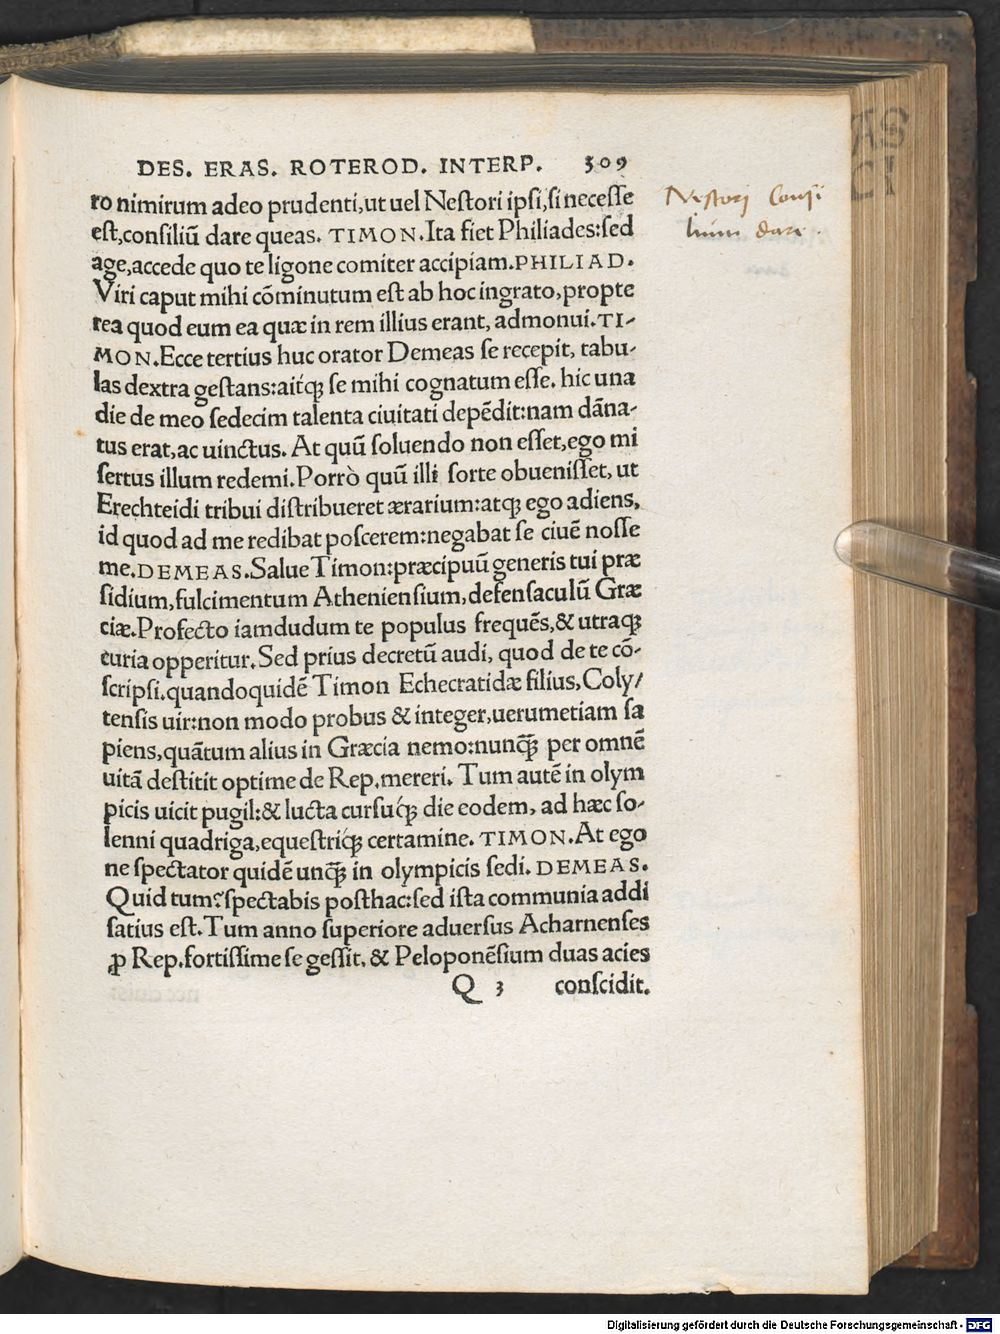 DES. ERAS. ROTEROD. INTERP. 309
ro nimirum adeo prudenti,ut uel Nestori ipsi,si necesse
est,consiliū dare queas. TIMON.Ita fiet Philiades:sed
age,accede quo te ligone comiter accipiam.PHILIAD.
Viri caput mihi cōminutum est ab hoc ingrato,propte
rea quod eum ea quæ in rem illius erant, admonui.TI-
MON.Ecce tertius huc orator Demeas se recepit, tabu-
las dextra gestans:aitq́ꝫ se mihi cognatum esse. hic una
die de meo sedecim talenta ciuitati depēdit:nam dāna-
tus erat,ac uinctus. At quū soluendo non esset,ego mi
sertus illum redemi.Porrò quū illi sorte obuenisset, ut
Erechteidi tribui distribueret ærarium:atqꝫ ego adiens,
id quod ad me redibat poscerem:negabat se ciuē nosse
me.DEMEAS.Salue Timon:præcipuū generis tui præ
sidium,fulcimentum Atheniensium,defensaculū Græ
ciæ.Profecto iamdudum te populus frequēs,& utraqꝫ
curia opperitur.Sed prius decretū audi, quod de te cō-
scripsi.quandoquidē Timon Echecratidæ filius,Coly/
tensis uir:non modo probus & integer,uerumetiam sa
piens,quātum alius in Græcia nemo:nunq̄ꝫ per omnē
uitā destitit optime de Rep.mereri. Tum autē in olym
picis uicit pugil:& lucta cursuq́ꝫ die eodem, ad hæc so-
lenni quadriga,equestriq́ꝫ certamine. TIMON.At ego
ne spectator quidē unq̄ꝫ in olympicis sedi. DEMEAS.
Quid tum?spectabis posthac:sed ista communia addi
satius est.Tum anno superiore aduersus Acharnenses
ꝓ Rep.fortissime se gessit, & Peloponēsium duas acies
Q 3 conscidit.
Nestorj Consi
lium dare.
Digitalisierung gefördert durch die Deutsche Forschungsgemeinschaft - DFG